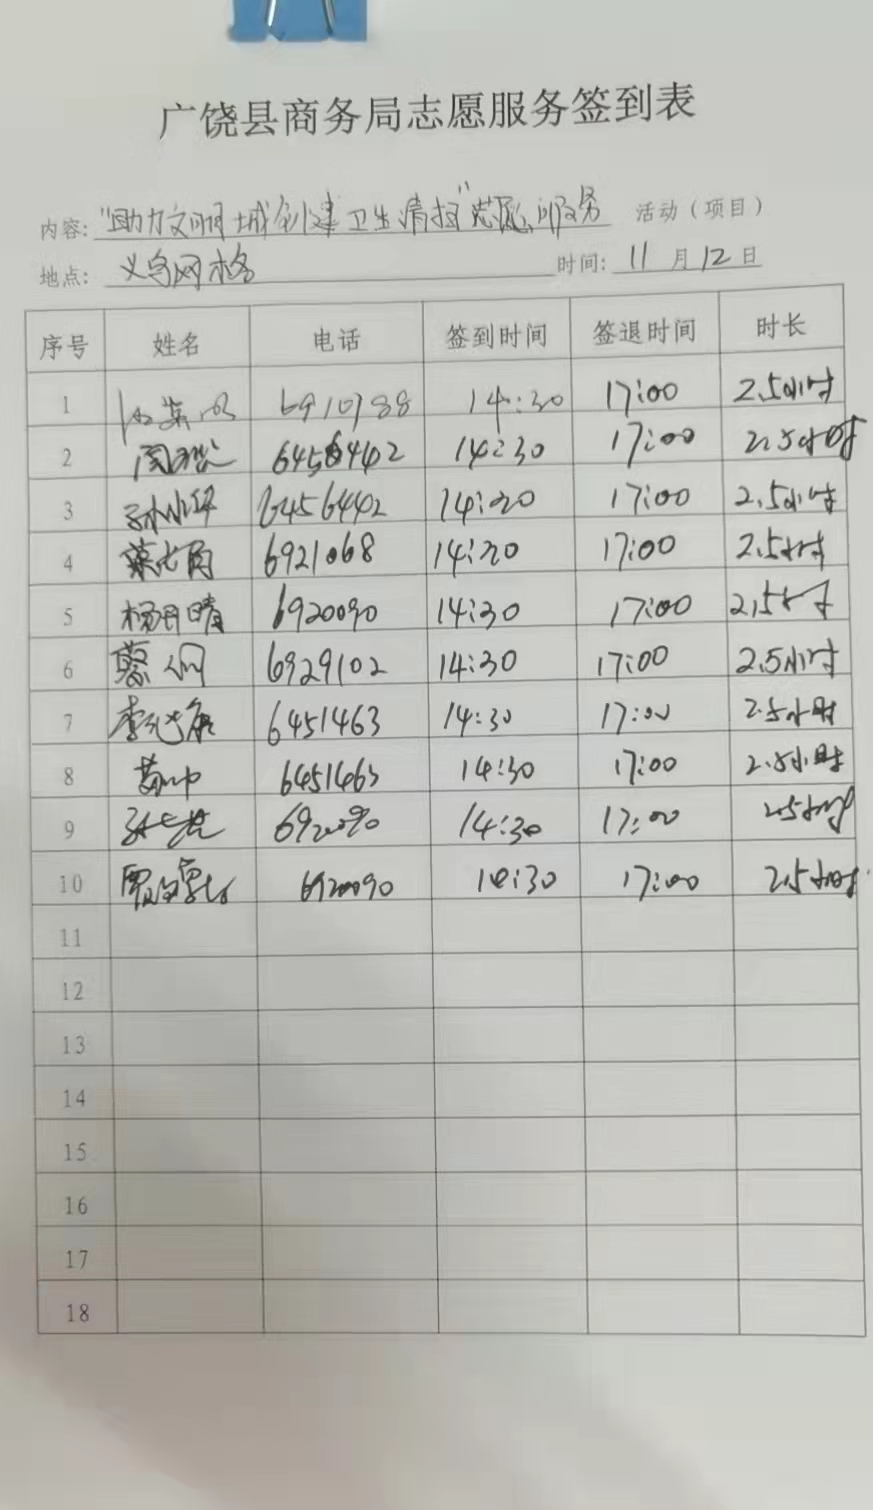 广饶县商务局志愿服务签到表
内容: "助力文明城创建卫生清扫"志愿服务 活动（项目）
地点: 义乌网格 时间: 11 月 12 日
序号 姓名 电话 签到时间 签退时间 时长
1 6910788 14:30 17:00 2.5小时
2 6456442 14:30 17:00 2.5小时
3 6456442 14:30 17:00 2.5小时
4 6921068 14:30 17:00 2.5小时
5 杨丹晴 6920090 14:30 17:00 2.5小时
6 6929102 14:30 17:00 2.5小时
7 6451463 14:30 17:00 2.5小时
8 6451463 14:30 17:00 2.5小时
9 6920090 14:30 17:00 2.5小时
10 6920090 14:30 17:00 2.5小时
11
12
13
14
15
16
17
18